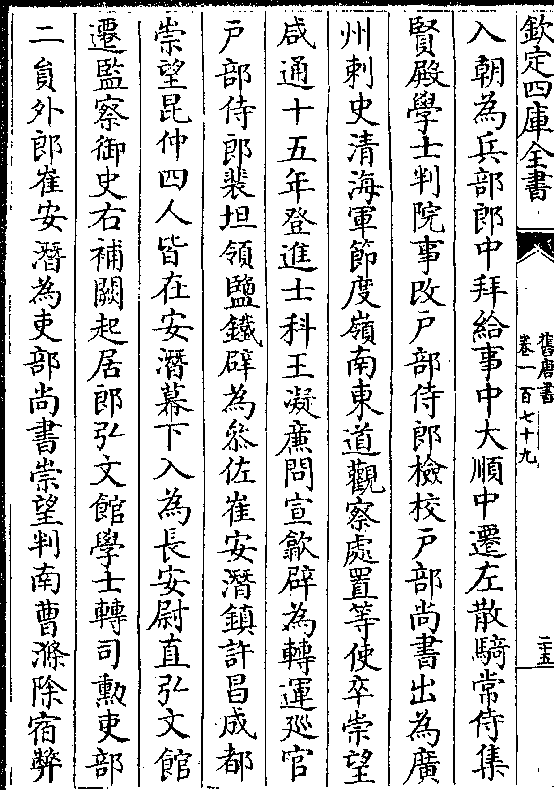 欽定四庫全書
舊唐書
卷一百七十九
二十五
入朝為兵部郎中拜給事中大順中遷左散騎常侍集
賢殿學士判院事改戶部侍郎檢校戶部尚書出為廣
州刺史清海軍節度嶺南東道觀察處置等使卒崇望
咸通十五年登進士科王凝廉問宣歙辟為轉運廵官
戶部侍郎裴坦領鹽鐵辟為叅佐崔安潛鎮許昌成都
崇望昆仲四人皆在安潛幕下入為長安尉直弘文館
遷監察御史右補闕起居郎弘文館學士轉司勲吏部
二員外郎崔安潛為吏部尚書崇望判南曹滌除宿弊